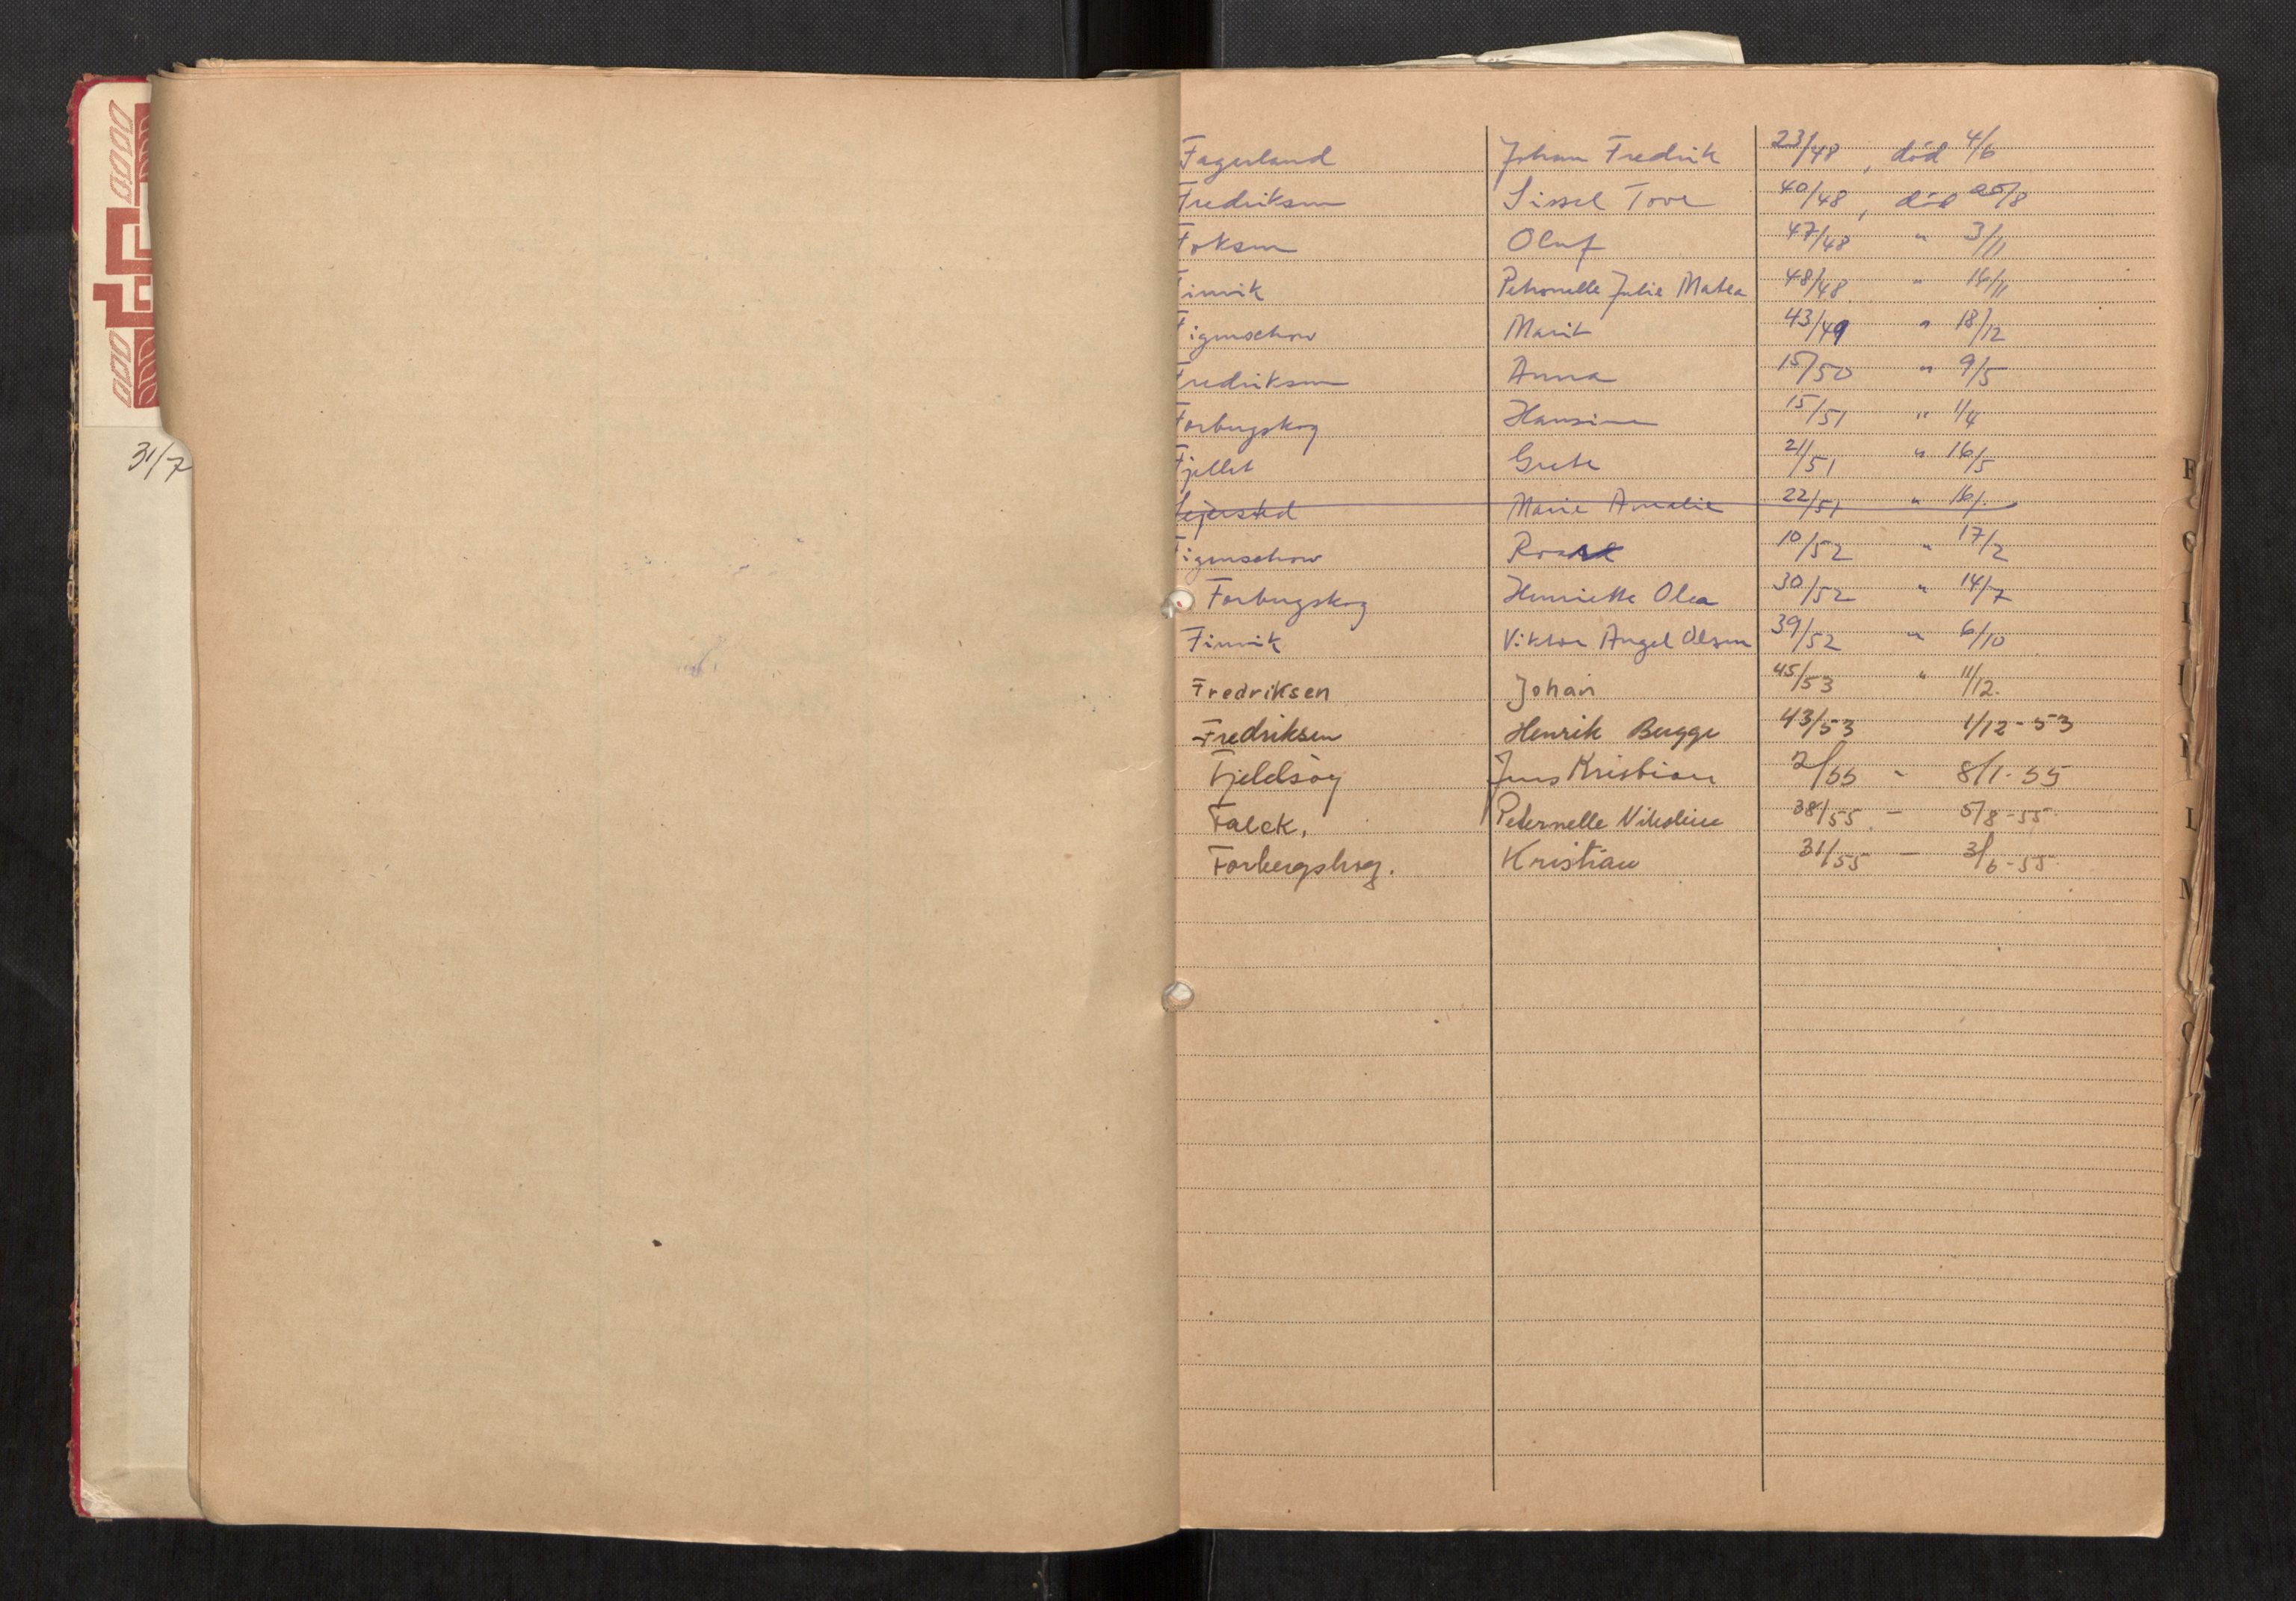 31/7
Fagerland Johan Fredrik 23/48, død 4/6
Fredriksen Sissel Tove 40/48, død 25/8
Foksen Oluf 47/48 " 3/11
Finvik Petronelle Julie Matea 48/48 " 14/11
Figenschow Marit 43/49 " 18/12
Fredriksen Anna 15/50 " 9/5
Forbergskog Hansine 15/51 " 1/4
Fjellet Grete 21/51 " 16/5
Lejersted Marie Amalie 22/51 " 16/.
Figenschow 10/52 " 17/2
Forbergskog Henriette Olea 30/52 " 14/7
Finvik Viktor Angel Olsen 39/52 " 6/10
Fredriksen Johan 45/53 " 11/12.
Fredriksen Henrik Bugge 43/53 1/12-53
Fjeldsøy Jens Kristian 2/55 - 8/1-55
Falck. Peternelle Nikoline 38/55 - 5/8-55
Forbergskog. Kristian 31/55 - 3/6-55
F
L